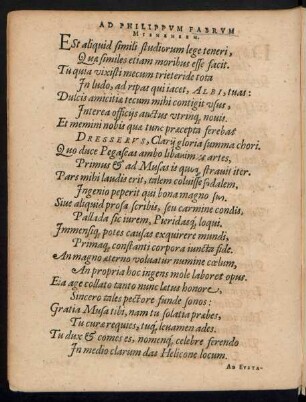 AD PHILIPPVM FABRVM
MISNENSEM.
ESt aliquid simili studiorum lege teneri,
Qua similes etiam moribus esse facit.
Tu quia vixisti mecum trieteride tota
In ludo, ad ripas qui iacet, ALBI, tuas:
Dulcis amicitiæ tecum mihi contigit vsus,
Interea officijs auctus vtrinq, nouis.
Et memini nobis quæ tunc præcepta ferebat
DRESSERVS, Clarij gloria summa chori.
Quo duce Pegaseas ambo libauimus artes,
Primus & ad Musas is quoq strauit iter.
Pars mihi laudis erit, talem coluisse sodalem,
Ingenio peperit qui bona magno suo.
Siue aliquid prosa scribis, seu carmine condis,
Pallada sic iurem, Pieridasq, loqui.
Immensiq, potes causas exquirere mundi,
Primaq, constanti corpora iuncta fide.
An magno æterno voluatur numine cœlum,
An propria hoc ingens mole laboret opus.
Eia age collato tanto nunc latus honore,
Sincero tales pectore funde sonos:
Gratia Musa tibi, nam tu solatia præbes,
Tu curæ requies, tuq, leuamen ades.
Tu dux & comes es, nomenq, celebre ferendo
In medio clarum das Helicone locum.
AD EVSTA-